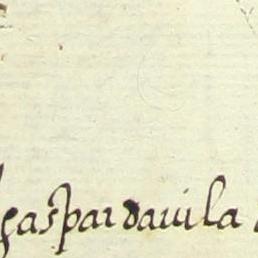 gaspar davila